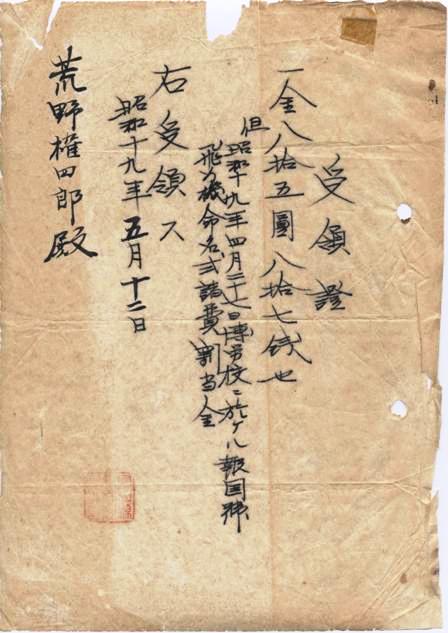 受領證
一金八拾五圓八拾七銭也
但昭和十九年四月二十 日 校ニ於ケル報国號
飛行機命名式諸費割当金
右受領ス
昭和十九年五月十二日
荒野権四郎殿